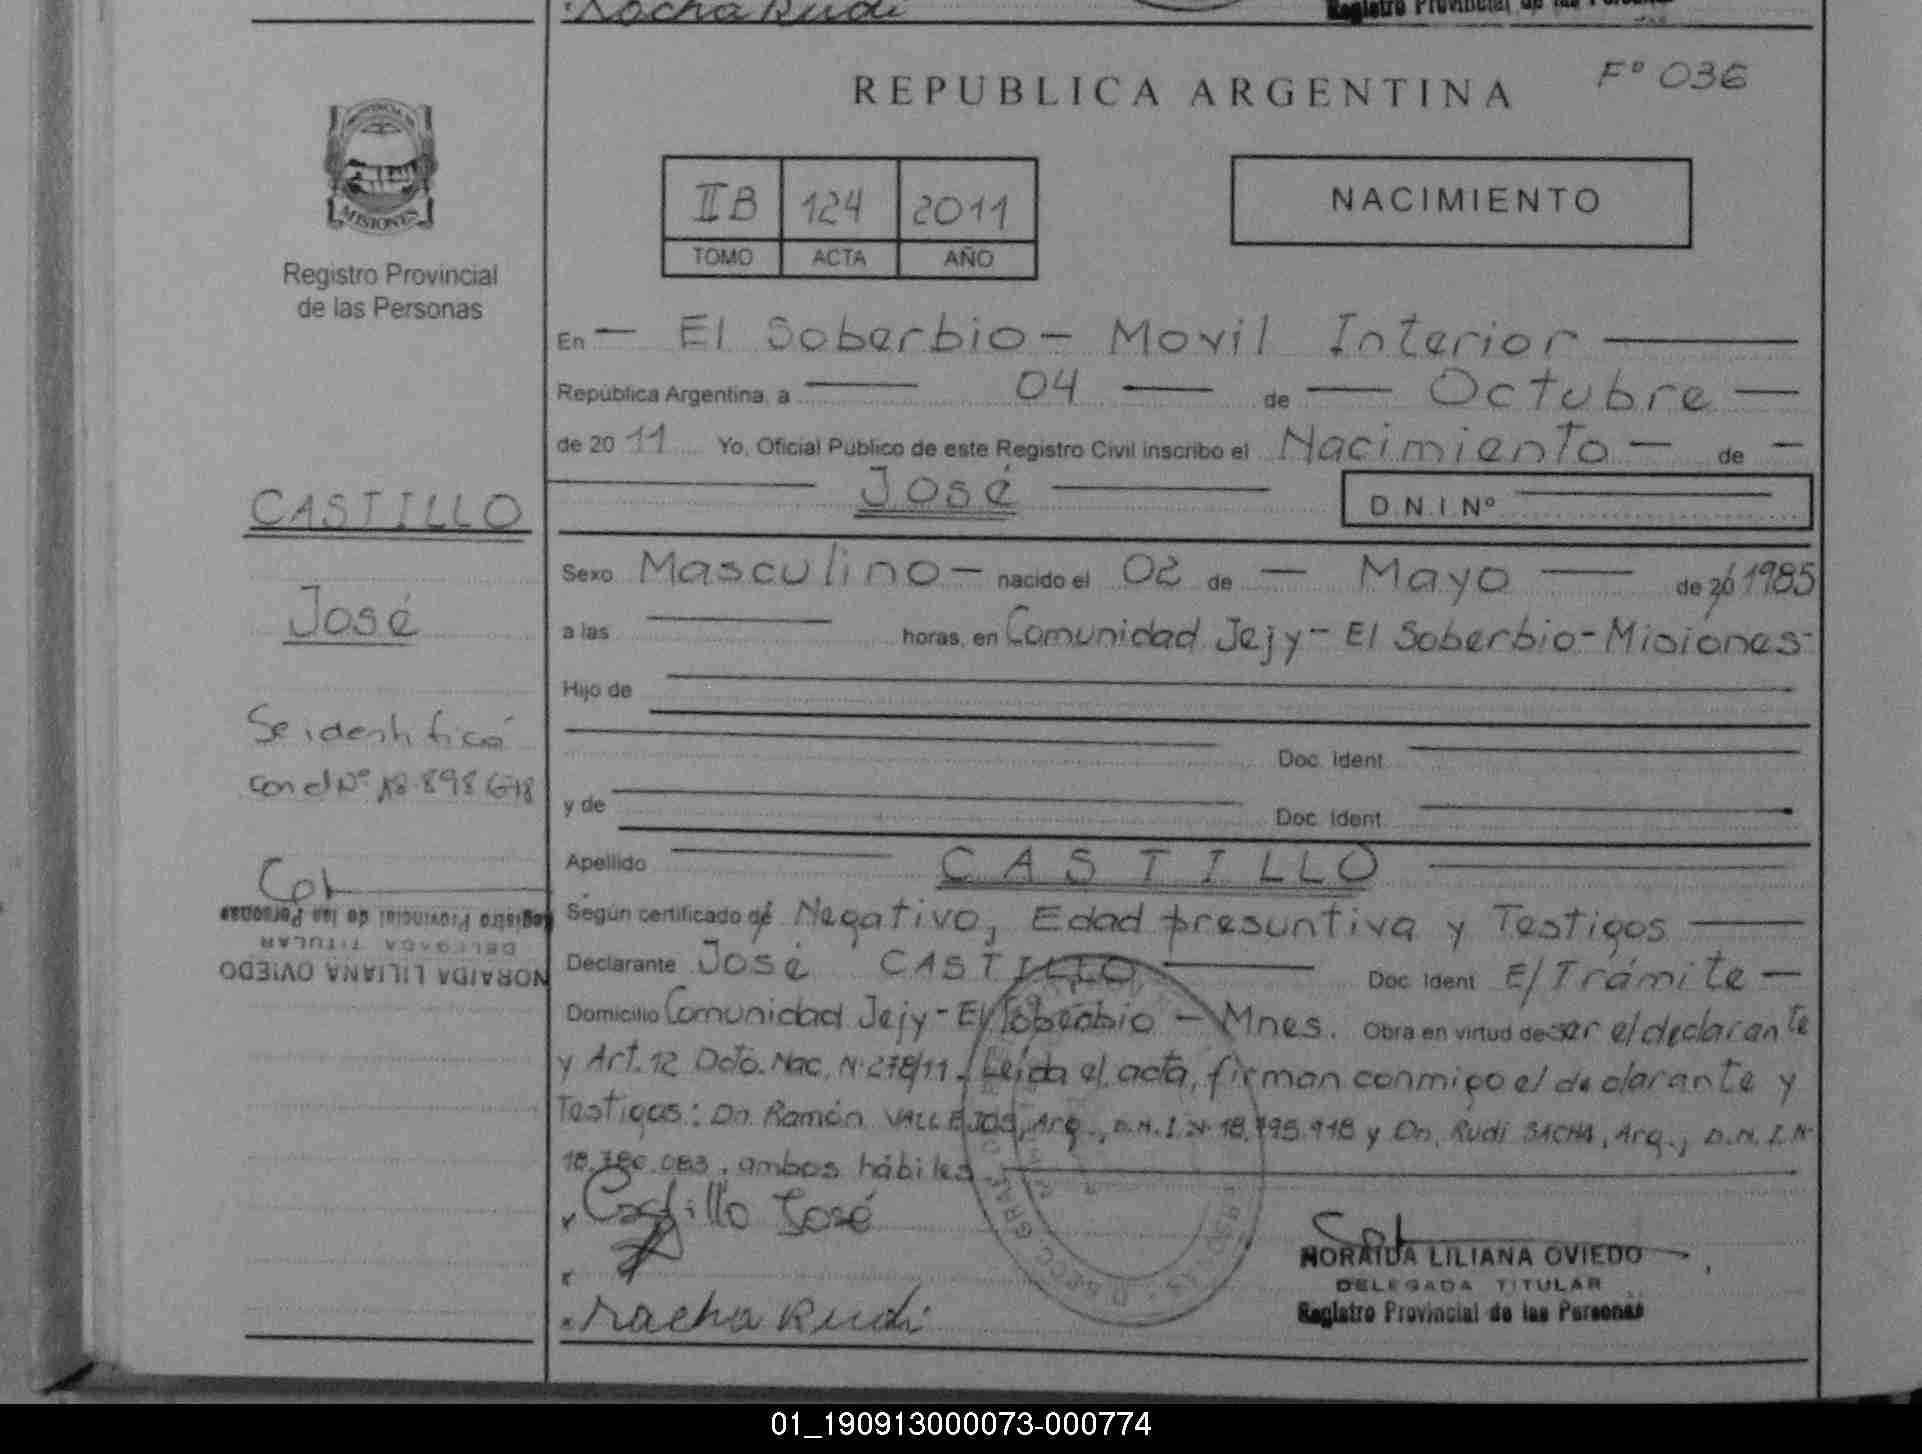 Registro Provincial de las Personas
REPUBLICA ARGENTINA
Fº 036
IIB 124 2011
TOMO ACTA AÑO
NACIMIENTO
MISIONES
Registro Provincial
de las Personas
CASTILLO
José
Se identificó
con el Nº
Registro Provincial de las Personas
DELEGADA TITULAR
NORAIDA LILIANA OVIEDO
En — El Soberbio - Movil Interior —
República Argentina, a — 04 — de — Octubre —
de 20 11 Yo, Oficial Público de este Registro Civil inscribo el Nacimiento — de —
— José — D.N.I. Nº —
Sexo Masculino — nacido el 02 de — Mayo — de 20 1985
a las — horas, en Comunidad Jejy - El Soberbio - Misiones -
Hijo de —
Doc. Ident. —
y de — Doc. Ident. —
Apellido — CASTILLO —
Según certificado de Negativo, Edad presuntiva y Testigos —
Declarante José CASTILLO — Doc. Ident. E/Trámite —
Domicilio Comunidad Jejy - El Soberbio — Mnes. Obra en virtud de ser el declarante
y Art. 12 Dcto. Nac. Nº 278/11. Leída el acta, firman conmigo el declarante y
Testigos: Dn. Ramón VALLEJOS, Arg., D.N.I. Nº 18.795.918 y Dn. Rudi SACHA, Arg., D.N.I. Nº
18.780.083, ambos hábiles —
Castillo José
Racha Rudi
NORAIDA LILIANA OVIEDO
DELEGADA TITULAR
Registro Provincial de las Personas
01_190913000073-000774